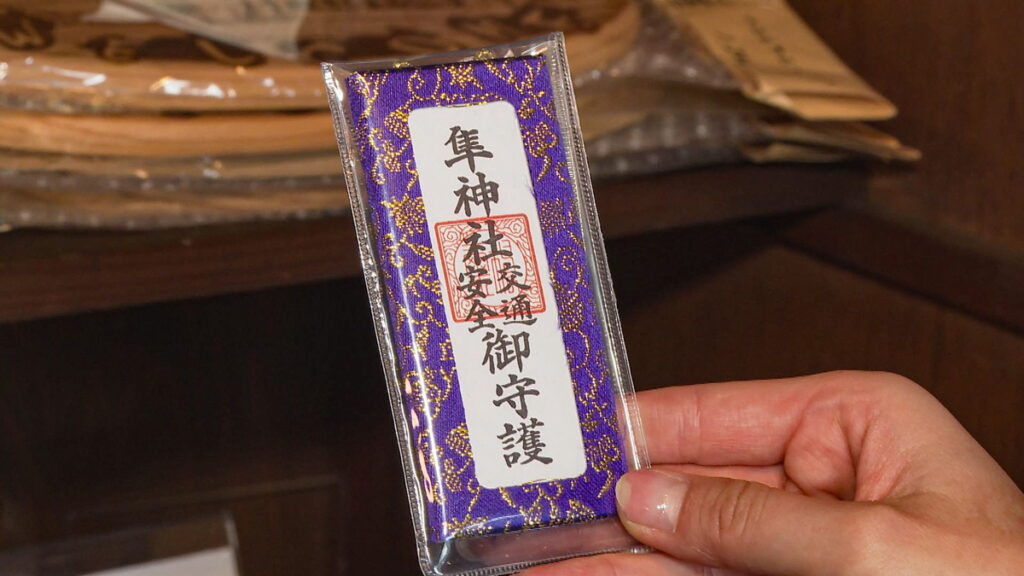 隼神社
交通
安全
御守護